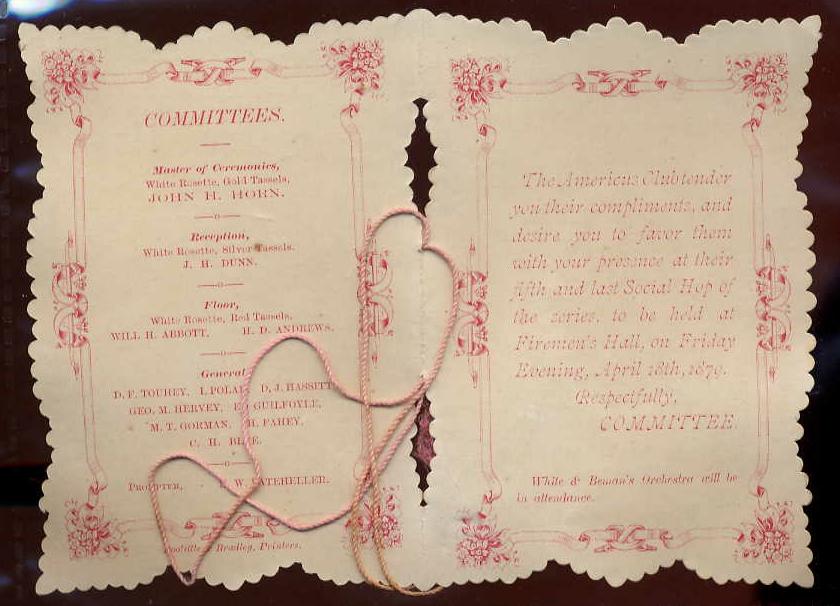 COMMITTEES.
Master of Ceremonies,
White Rosette, Gold Tassels,
JOHN H. HORN.
Reception,
White Rosette, Silver Tassels.
J. H. DUNN.
Floor,
White Rosette, Red Tassels,
WILL H. ABBOTT. H. D. ANDREWS.
General
D. F. TOUHEY, D. J. HASSITT
GEO. M. HERVEY, GUILFOYLE,
M. T. GORMAN, FAHEY,
C. H.
PROMPTER, W.
Bradley, Printers.
The Americus Club tender
you their compliments, and
desire you to favor them
with your presence at their
fifth and last Social Hop of
the series, to be held at
Firemen's Hall, on Friday
Evening, April 18th, 1879.
Respectfully,
COMMITTEE.
White & Beman's Orchestra will be
in attendance.